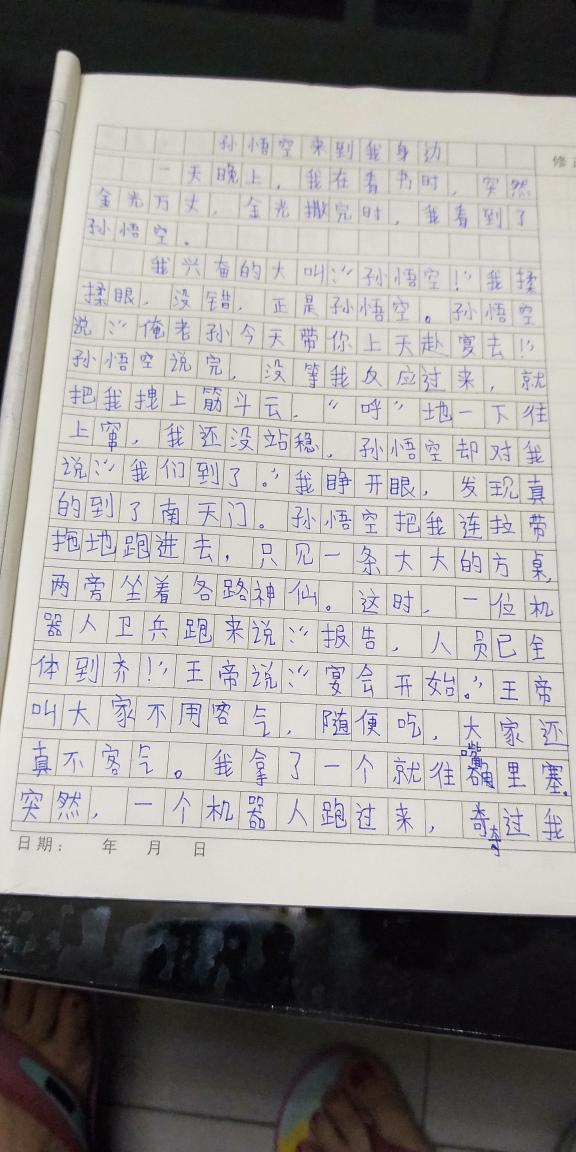 孙悟空来到我身边
修
一天晚上，我在看书时，突然
金光万丈，金光撒完时，我看到了
孙悟空。
我兴奋的大叫：“孙悟空！”我揉
揉眼，没错，正是孙悟空。孙悟空
说：“俺老孙今天带你上天赴宴去！”
孙悟空说完，没等我反应过来，就
把我拽上筋斗云，“呼”地一下往
上窜，我还没站稳，孙悟空却对我
说：“我们到了。”我睁开眼，发现真
的到了南天门。孙悟空把我连拉带
拖地跑进去，只见一条大大的方桌，
两旁坐着各路神仙。这时，一位机
器人卫兵跑来说：“报告，人员已全
体到齐！”王帝说：“宴会开始。”王帝
叫大家不用客气，随便吃，大家还
真不客气。我拿了一个就往嘴里塞。
突然，一个机器人跑过来，夺过我
日期： 年 月 日